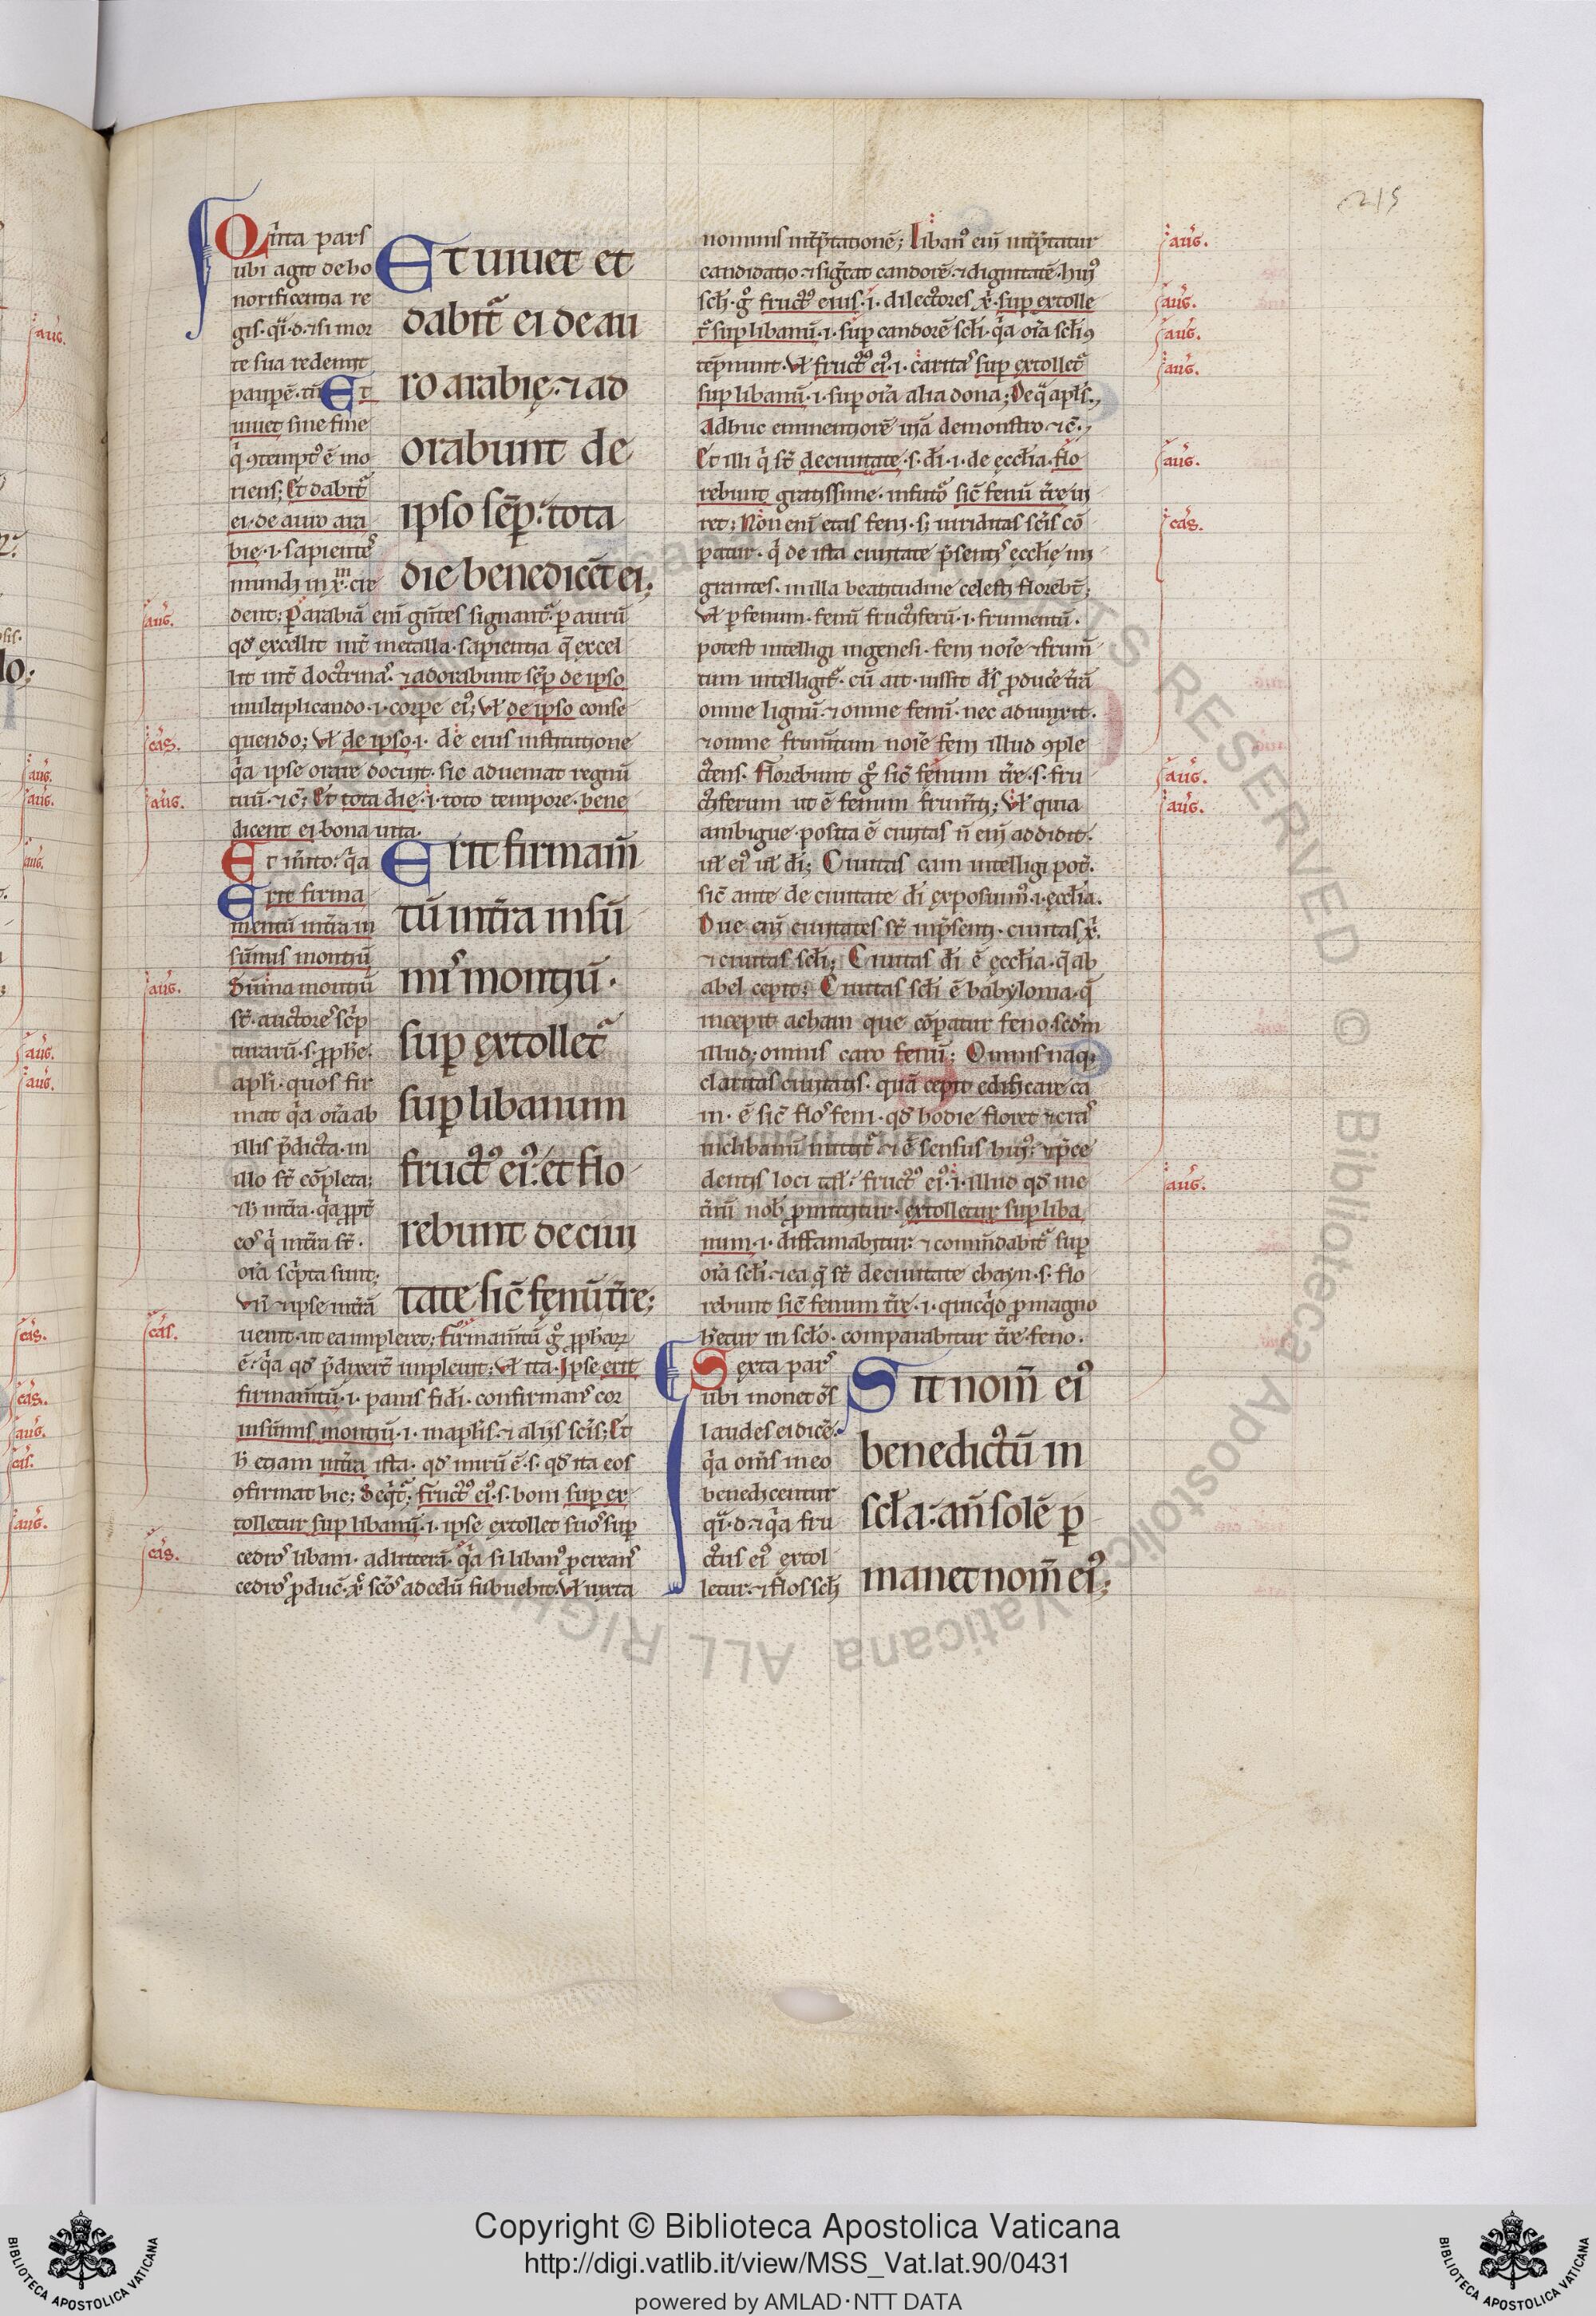 215
Qi̅nta pars
ubi agit de ho
norificentia re
gis. q̅i. d. ⁊ si mor
te sua redemit
paupe̅. tn̅ Et
uiuet sine fine
q̇ ꝯtempt᷒ e̅ mo
riens; Et dabit᷑
ei. de auro ara
bię .i. sapientes
mundi in x̅. cre
dent; P arabia̅ eni̅ gn̅tes signant᷑. p auru̅
qd̅ excellit int̅ metalla. sapientia q̅ excel
lit int̅ doctrinas. ⁊ adorabunt se̅p de ipso
multiplicando .i. corpe ei᷒; Vl̅ de ipso conse
quendo; Vl̅ de ipso .i. de eius institutione
q̅a ipse orare docuit. sic adueniat regnu̅
tuu̅. ⁊c̅; Et tota die .i. toto tempore. bene
dicent ei. bona uita.
Et uiuet et
dabit᷑ ei de au
ro arabię. ⁊ ad
orabunt de
ipso se̅p. tota
die benedice̅t ei;
Et m̅ito. q̅a
Erit firma
mentu̅ int̅ra in
su̅mis montiu̅
Su̅ma montiu̅
st̅. auctores sc̅p
turaru̅. s. ꝓph̅e.
apl̅i. quos fir
mat q̅a oi̅a ab
illis p̅dicta. in
illo st̅ co̅pleta;
⁊ h̅ int̅ra. q̅a ꝓpt̅
eos q̇ int̅ra st̅.
oi̅a sc̅pta sunt;
Vn̅ ⁊ ipse int̅ra̅
uenit. ut ea impleret; firmam̅tu̅ g̊ ꝓphaꝝ
e̅. q̅a qd̅ p̅dixert̅ impleuit; Vl̅ ita. Ipse erit
firmam̅tu̅ .i. panis fidi̅. confirmans cor
in su̅mis montiu̅ .i. in apl̅is. ⁊ aliis sc̅is; Et
h̅ etiam int̅ra ista. qd̅ miru̅ e̅. s. qd̅ ita eos
ꝯfirmat hic; Seq̅t᷑; fruct᷒ ei᷒. s. boni sup ex
tolletur sup libanu̅ .i. ipse extollet suos sup
cedros libani. ad litt̅era̅. q̅a si liban᷒ p creans
cedros ꝓduc̅. x̅ sc̅os ad celu̅ subuehit. Vl̅ iuxta
Erit firmam̅
tu̅ int̅ra in su̅
mis montiu̅.
sup extollet᷑
sup libanum
fruct᷒ ei᷒. et flo
rebunt de ciui
tate sic̅ fenu̅ t̅re;
nominis int̅p̅tatione̅; Liban᷒ eni̅ int̅p̅tatur
candidatio ⁊ sig̅cat candore̅. ⁊ dignitate̅. hui᷒
scl̅i. g̊ fruct᷒ eius .i. dilectores x̅. sup extolle
t᷑ sup libanu̅ .i. sup candore̅ scl̅i. q̅a oi̅a scl̅i ꝯ
te̅pnunt. Vl̅ fruct᷒ ei᷒ .i. caritas sup extollet᷑
sup libanu̅ .i. sup oi̅a alia dona; De q̅ apl̅s.
Adhuc eminentiore̅ uia̅ demonstro. ⁊c̅.
Et illi q̇ st̅ de ciuitate. s. di̅ .i. de eccl̅ia. flo
rebunt gratissime. in futo᷑ sic̅ fenu̅ t̅re ui
ret; Non eni̅ etas feni. s; uiriditas sc̅is co̅
patur. q̇ de ista ciuitate p̅sentis eccl̅ię mi
grantes. in illa beatitudine celesti florebt̅;
Vl̅ p fenum. fenu̅ fructiferu̅ .i. frumentu̅.
potest intelligi in genesi. feni noi̅e ⁊ frum̅
tum intelligit᷑. cu̅ ait. iussit d̅s ꝓducere t̅ra̅
omne lignu̅. ⁊ omne fenu̅. nec adiunxit.
⁊ omne frum̅tum noi̅e feni illud ꝯple
ctens. Florebunt g̊ sic̅ fenum t̅re. s. fru
ctiferum ut e̅ fenum frum̅ti; Vl̅ quia
ambigue. posita e̅ ciuitas n̅ eni̅ addidit.
ul̅ ei᷒ ul̅ di̅; Ciuitas cain intelligi pot̅.
sic̅ ante de ciuitate di̅ exposuim᷒ .i. eccl̅ia.
Due eni̅ ciuitates st̅ in p̅senti. ciuitas x̅.
⁊ ciuitas scl̅i; Ciuitas di̅ e̅ eccl̅ia. q̅ ab
abel cepit; Ciuitas scl̅i e̅ babylonia. q̅
incepit a cham que co̅patur feno. scd̅m
illud; omnis caro fenu̅; Omnis naq̅
claritas ciuitatis. qua̅ cepit edificare ca
in. e̅ sic̅ flos feni. qd̅ hodie floret ⁊ cras
in clibanu̅ mittit᷑ ⁊ e̅ sensus hui᷒. ⁊ p̅ce
dentis loci tal̅. fruct᷒ ei᷒ .i. illud qd̅ me
t̅ru̅ nob̅ ꝓmittitur. extolletur sup liba
num .i. diffamabitur. ⁊ comm̅dabit᷑ sup
oi̅a scl̅i. ⁊ ea q̅ st̅ de ciuitate chayn. s. flo
rebunt sic̅ fenum t̅re .i. quicq̅d ꝓ magno
h̅etur in scl̅o. comparabitur t̅re feno.
Sexta pars
ubi monet o̅s
laudes ei dice̅.
q̅a om̅s in eo
benedicentur
q̅i. d. ⁊ q̅a fru
ctus ei᷒ extol
letur. ⁊ flos scl̅i
Sit nom̅ ei᷒
benedictu̅ in
scl̅a. an̅ sole̅ p
manet nom̅ ei᷒;
aug.
cas.
aug.
aug.
cas.
cas.
aug.
aug.
aug.
aug.
aug.
cas.
aug.
aug.
aug.
Copyright © Biblioteca Apostolica Vaticana
http://digi.vatlib.it/view/MSS_Vat.lat.90/0431
powered by AMLAD·NTT DATA
BIBLIOTECA APOSTOLICA VATICANA
BIBLIOTECA APOSTOLICA VATICANA